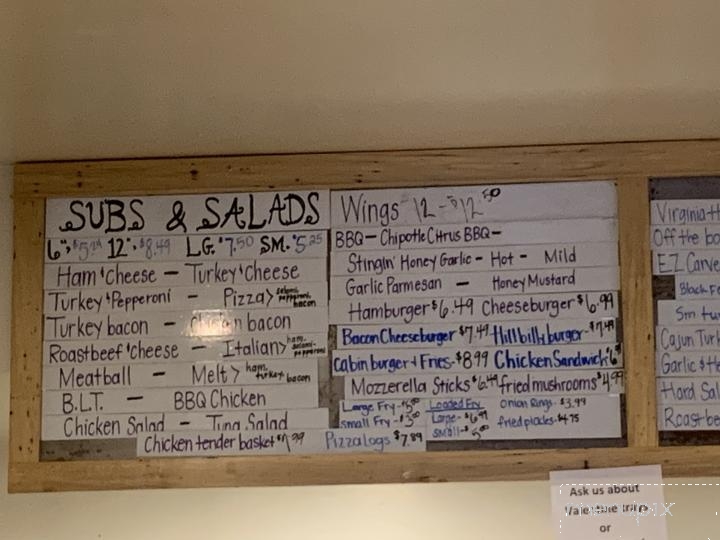 SUBS & SALADS
6", 12", $8.49 LG. $7.50 SM. $5.25
Ham & Cheese — Turkey & Cheese
Turkey & Pepperoni — Pizza > salami, pepperoni, bacon
Turkey bacon — Chicken bacon
Roastbeef & cheese — Italian > ham, salami, pepperoni
Meatball — Melt > ham, turkey, bacon
B.L.T. — BBQ Chicken
Chicken Salad — Tuna Salad
Chicken tender basket
Wings 12 - $12.50
BBQ — Chipotle Citrus BBQ —
Stingin' Honey Garlic - Hot - Mild
Garlic Parmesan — Honey Mustard
Hamburger $6.49 Cheeseburger $6.99
Bacon Cheeseburger $7.49 Hillbilly burger - $7.49
Cabin burger + Fries - $8.99 Chicken Sandwich
Mozzerella Sticks $6.49 fried mushrooms $4.99
Large Fry -
small Fry -
Loaded Fry
Large - $6.99
small -
Onion Rings - $3.99
fried pickles - $4.75
Pizza logs $7.89
Virginia H
Off the bo
EZ Carve
Black F
Sm tu
Cajun Turk
Garlic & He
Hard Sal
Roast be
Ask us about
Valentine trays
or